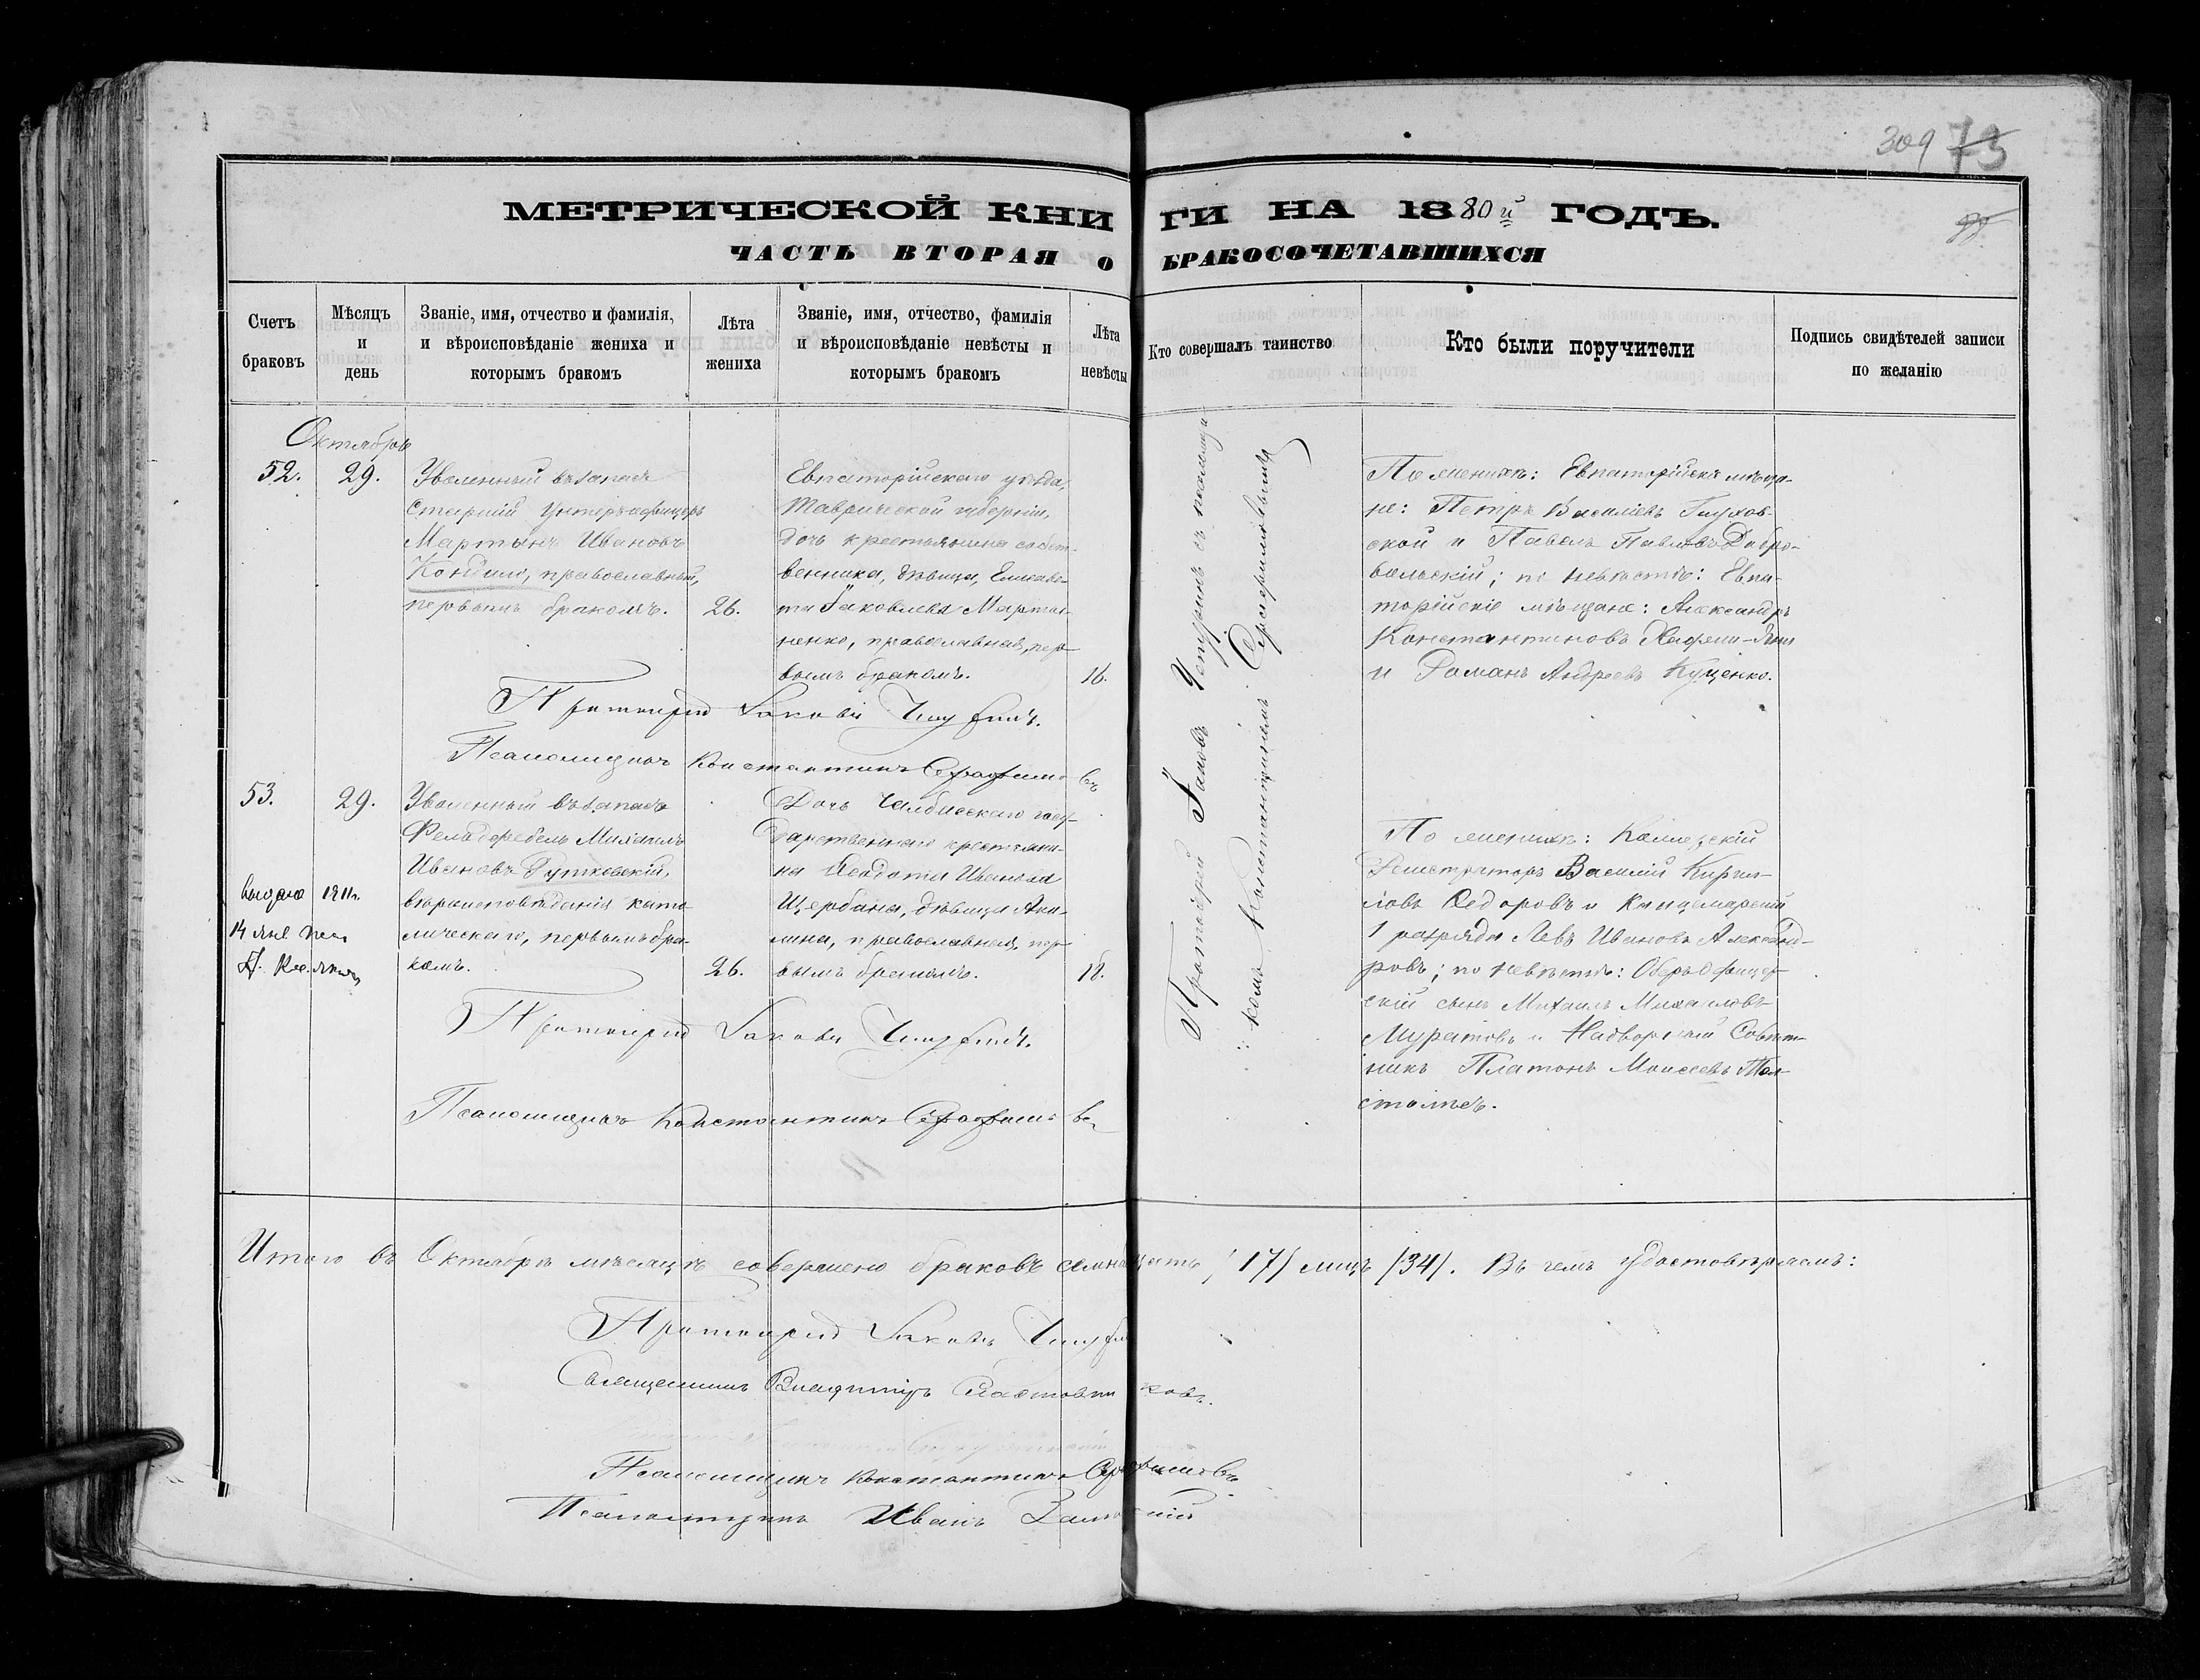 309 73
МЕТРИЧЕСКОЙ КНИГИ НА 1880й ГОДЪ.
ЧАСТЬ ВТОРАЯ О БРАКОСОЧЕТАВШИХСЯ
Счетъ браковъ
Мѣсяцъ и день
Званіе, имя, отчество и фамилія,
и вѣроисповѣданіе жениха и
которымъ бракомъ
Лѣта жениха
Званіе, имя, отчество, фамилія
и вѣроисповѣданіе невѣсты и
которымъ бракомъ
Лѣта невѣсты
Кто совершалъ таинство
Кто были поручители
Подпись свидѣтелей записи
по желанію
Октябрь
52. 29.
Уволенный въ запасъ
Старшій Унтеръ-офицеръ
Мартынъ Ивановъ
православный,
первымъ бракомъ. 26.
Евпаторійскаго уѣзда,
Таврической губерніи,
дочь крестьянина собст-
венника, дѣвица, Елисаве-
та Іаковлева Марты-
ненко, православная, пер-
вымъ бракомъ. 16.
Протоіерей Іаковъ Чепуринъ съ псаломщи-
комъ Константиномъ Серафимовымъ
По женихѣ: Евпаторійскіе мѣща-
не: Петръ Василіевъ Глухов-
ской и Павелъ Павловъ Добро-
вольскій; по невѣстѣ: Евпа-
торійскіе мѣщане: Александръ
Константиновъ
и Романъ Андреевъ Куценко.
Протоіерей Іаковъ Чепуринъ.
Псаломщикъ Константинъ Серафимовъ
53. 29.
Уволенный въ запасъ
Фельдфебель Михаилъ
Ивановъ Рутковскій,
вѣроисповѣданія като-
лическаго, первымъ бра-
комъ. 26.
1911г.
14
Дочь Челбасскаго госу-
дарственнаго крестьяни-
на Ѳеодота Иванова
Щербина, дѣвица Аки-
лина, православная, пер-
вымъ бракомъ. 18.
По женихѣ: Коллежскій
Регистраторъ Василій Кирил-
ловъ Ѳедоровъ и Канцелярскій
1 разряда Левъ Ивановъ Александ-
ровъ; по невѣстѣ: Оберъ-офицер-
скій сынъ Михаилъ Михаиловъ
Муратовъ и Надворный Совѣт-
никъ Платонъ Моисеевъ Тол-
столѣсъ.
Протоіерей Іаковъ Чепуринъ.
Псаломщикъ Константинъ Серафимовъ
Итого въ Октябрѣ мѣсяцѣ совершено браковъ семнадцать /17/ лицъ /34/. Въ чемъ удостовѣряемъ:
Протоіерей Іаковъ Чепуринъ
Священникъ Владиміръ
Псаломщикъ Константинъ Серафимовъ.
Псаломщикъ Иванъ